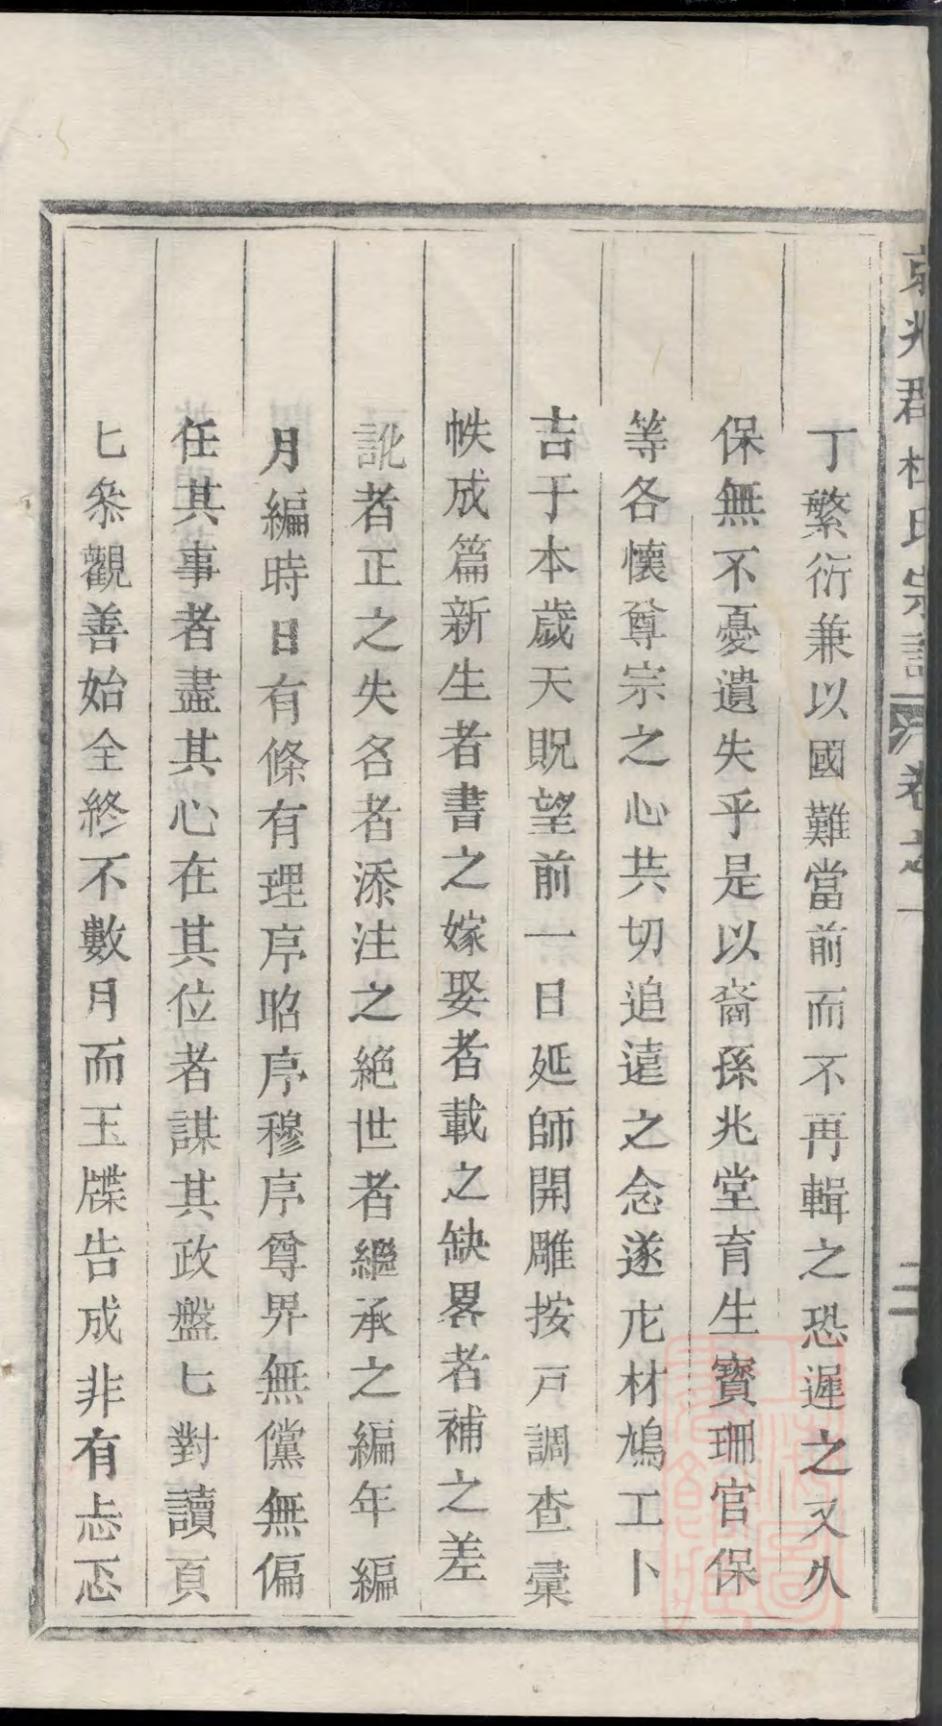 京兆郡杜氏宗譜 卷之一 二
丁繁衍兼以國難當前而不再輯之恐遲之又久
保無不憂遺失乎是以裔孫兆堂育生寶珊官保
等各懷尊宗之心共切追遠之念遂庀材鳩工卜
吉于本歲天貺望前一日延師開雕按戸調查彙
帙成篇新生者書之嫁娶者載之缺畧者補之差
訛者正之失名者添注之絶世者繼承之編年編
月編時日有條有理序昭序穆序尊畀無儻無偏
任其事者盡其心在其位者謀其政盤匕對讀頁
匕叅觀善始全終不數月而玉牒告成非有忐忑